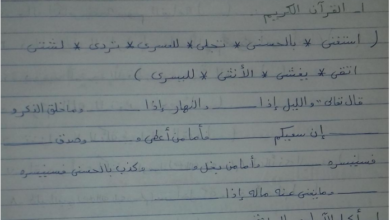 1- القرآن الكريم
( استغنى * بالحسنى * تجلى * لليسرى * تردى * لشتى
اتقى * يغشى * الأنثى * لليسرى )
قال تعالى - والليل إذا والنهار إذا وما خلق الذكر و
إن سعيكم فأما من أعطى و وصدق
فسنيسره وأما من بخل و وكذب بالحسنى فسنيسره
وما يغنى عنه ماله إذا